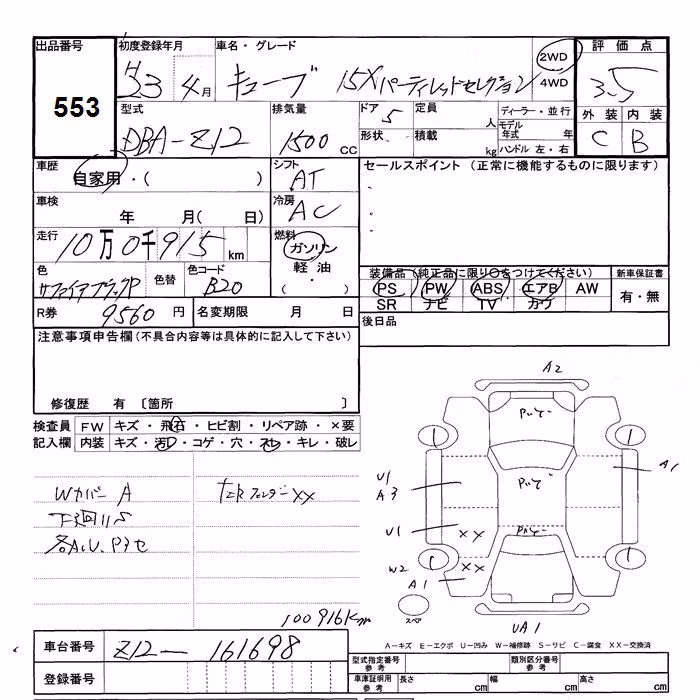 出品番号 初度登録年月 車名・グレード 評価点
553
H23年4月 キューブ 15Xパーティレッドセレクション 2WD 4WD 3.5
型式 排気量 ドア 定員 人 ディーラー・並行 外装 内装
DBA-Z12 1500CC 5 形状 積載 kg モデル年式 年 ハンドル 左・右 C B
車歴 自家用・( ) シフト AT セールスポイント (正常に機能するものに限ります)
車検 年 月( 日) 冷房 AC
走行 10万0千915km 燃料 ガソリン 軽油 (・)
色 サファイアブラックP 色替 色コード B20
装備品(純正品に限り○をつけてください) 新車保証書
PS PW ABS エアB AW 有・無
SR ナビ TV カワ
R券 9560円 名変期限 月 日 後日品
注意事項申告欄(不具合内容等は具体的に記入して下さい)
修復歴 有 〔箇所 〕
検査員 FW キズ・飛石・ヒビ割・リペア跡・×要
記入欄 内装 キズ・汚レ・コゲ・穴・スレ・キレ・破レ
Wカバー A
下廻りS
各A.U.Pキセ
左Rフェンダー××
100916Km
A2
U1
A3
A1
U1
××
W2
××
A1
スペア
UA1
A-キズ E-エクボ U-凹み W-補修跡 S-サビ C-腐食 XX-交換済
車台番号 Z12-161698
登録番号
型式指定番号 参考 類別区分番号 参考
車庫証明用 参考 長さ cm 幅 cm 高さ cm